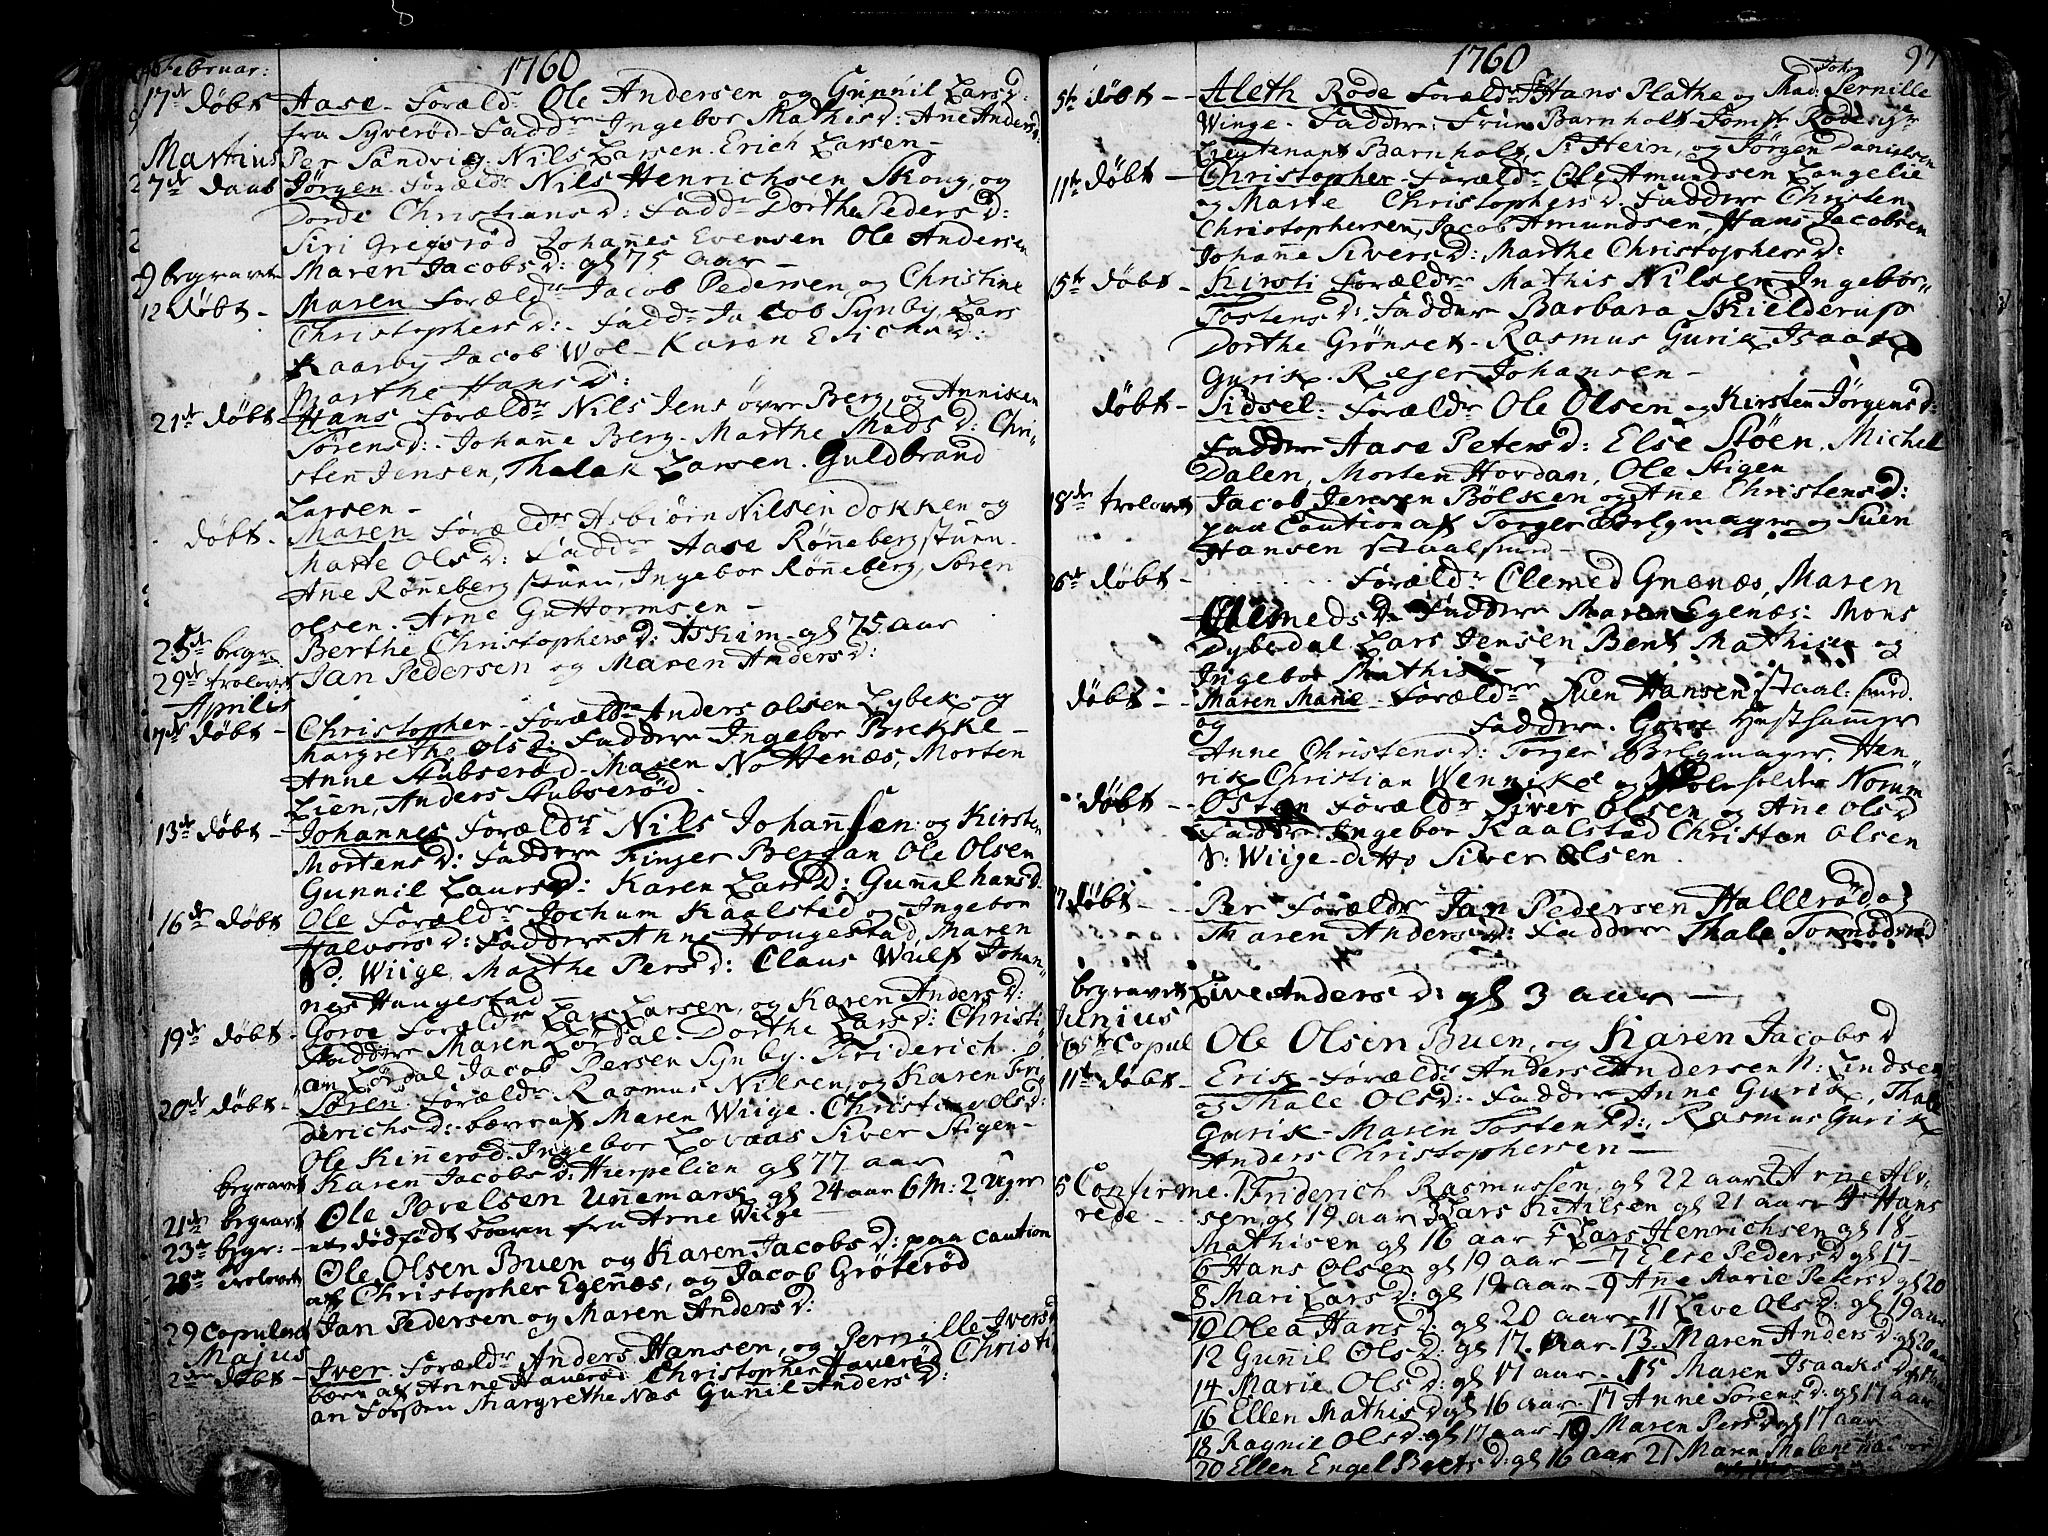 Februar: 1760
17de døbt Aase. Foræld: Ole Andersen og Gunnil Larsd:
fra Syverød Faddre Ingebor Mathisd: Ane Andersd:
Martius Per Sandvig. Nils Larsen. Erich Larsen
7de Jørgen. Foræld: Nils Henrichsen Skoug, og
Dorde Christiansd: Fadd: Dorthe Pedersd:
Siri Gregsrød Johannes Evensen Ole Andersen
9 begravet Maren Jacobsd: gl 75 aar
12 døbt Maren Foræld: Jacob Pedersen og Christine
Christophersd: Fadd: Jacob Synby, Lars
Kaarby Jacob Wol Karen Erichsd:
Marthe Hansd:
21de døbt Hans Foræld: Nils Jens øvre Berg, og Anniken
Sørensd: Johanne Berg. Marthe Madsd: Chri-
sten Jensen, Thalak Larsen. Guldbrand
Larsen
døbt Maren Foræld: Asbiørn Nilsen dokken og
Marte Olsd: Fadd: Aase Rønneberg stuen
Ane Rønneberg stuen, Ingebor Rønneberg, Søren
Olsen. Arne Guttormsen
25de begr: Berthe Christophersd: Askim gl 75 aar
29de trolovet Jan Pedersen og Maren Andersd:
Aprilis
7de døbt Christopher Foræld: Anders Olsen Lybek og
Margrethe Olsd: Faddere Ingebor Brekke
Anne Stubserød. Maren Nottenæs, Morten
Lien, Anders Stubserød
13de døbt Johannes Foræld: Nils Johannsen og Kirsten
Mortensd: Faddere Kinger Bergan Ole Olsen
Gunnil Laursd: Karen Larsd: Gunnil hansd:
16de døbt Ole Foræld: Jochum Kaalstad og Ingebor
Halvorsd: Faddere Anne Hougestad Maren
P: Wiige, Marthe Persd: Claus Wulf Johan-
nes Haugestad
19de døbt Goroe Foræld: Lars Larsen, og Karen Andersd:
Faddere Maren Lørdal. Dorthe Larsd: Christi-
an Lørdal Jacob Persen Synby. Friderich
20de døbt Søren. Foræld: Rasmus Nilsen, og Karen Fri-
derichsd: bærer af Maren Wiige. Christian Olsd:
Ole Kinnerød. Ingebor Lovaas Siver Stigen
begravet Karen Jacobsd: Hierpelien gl 77 aar
21de begravet Ole Povelsen Unnemark gl 24 aar 6 M: 2 Uger
23de begr: et dødfødt barn fra Arne Wiige
28de trolovet Ole Olsen Buen og Karen Jacobsd: paa caution
af Christopher Egennæs, og Jacob Grøterød
29 Copuleret Jan Pedersen og Maren Andersd:
Majus
2den døbt Iver. Foræld: Anders Hansen, og Pernille Iversd
bæren af Anne Haverød Christopher Haverød Christi-
an Margrethe Næs Gunil Andersd:
1760 97
5te døbt Aleth Rode Foræld: Hans Plathe og Mad: Pernille
Winge. Faddere: Frue Barnholt Jomfr Rode
Lieutenant Barnholt, Sr Hein, og Jørgen Danielsen
11te døbt Christopher Foræld: Ole Amundsen Langelie
og Marte Christophersd: Faddere Christen
Christophersen, Jacob Amundsen, Hans Jacobsen
Johanne Siversd: Marthe Christophersd:
15te døbt Kirsti Foræld: Mathis Nilsen Ingebor
Tostensd: Faddere Barbara Skielderup
Dorthe Grønset Rasmus Gurik Isaak
Gurik. Reier Johansen
døbt Sidsel: Foræld: Ole Olsen og Kirsten Jørgensd:
Faddere Aase Petersd: Else Støen, Michel
Dalen, Morten Hovdan, Ole Stigen
18de trolovet Jacob Jensen Bølsken og Ane Christensd:
paa Caution af Torger Belgmager og Suen
Hansen staalsmed
26de døbt Foræld: Clemed Gnenæs, Maren
Clemedsd: Faddere Maren Egenæs: Mons
Dybedal Lars Jensen Bent Mathisen og
Ingebor Mathisd:
døbt Maren Marie Foræld: Suen Hansen staal: smed.
og Faddere. Goroe Hysthammer
Anne Christensd: Torger Belgmager, Hen-
rik Christian Wennike og Skoleholder Norum
døbt Østen Foræld: Siver Olsen og Ane Olsd
Faddere Ingebor Kaalstad Christen Olsen
S: Wiige ditto Siver Olsen
7. døbt Per Foræld: Jan Pedersen Hallerød og
Maren Andersd: Faddere Thale Tormodsrød
begravet Live Andersd: gl 3 aar
Junius
6te Copul Ole Olsen Buen, og Karen Jacobsd
11te døbt Erik Foræld: Anders Andersen N: Lindsen
og Thale Olsd: Faddere Anne Gurik, Thale
Gurik Maren Tostensd: Rasmus Gurik
Anders Christophersen
5 Confirme- 1 Friderich Rasmussen, gl 22 aar 2 Arne Alv-
rede sen gl 19 aar 3 Lars Ketilsen gl 21 aar 4 Hans
Mathisen gl 16 aar 5 Lars Henrichsen gl 18
6 Hans Olsen gl 19 aar 7 Else Pedersd gl 17
8 Mari Larsd: gl 19 aar 9 Ane Marie Petersd gl 20
10 Olea Hansd: gl 20 aar 11 Live Olsd: gl 19 aar
12 Gunnil Olsd: gl 17. aar 13. Maren Andersd gl 20 aar
14 Marie Olsd: gl 17 aar 15 Maren Isaaksd gl
16 Ellen Mathisd gl 16 aar 17 Anne Sørensd: gl 17 aar
18 Ragnil Olsd: gl 17 aar 19 Maren Persd gl 17 aar
20 Ellen Engel Bertsd: gl 16 aar 21 Maren Malene